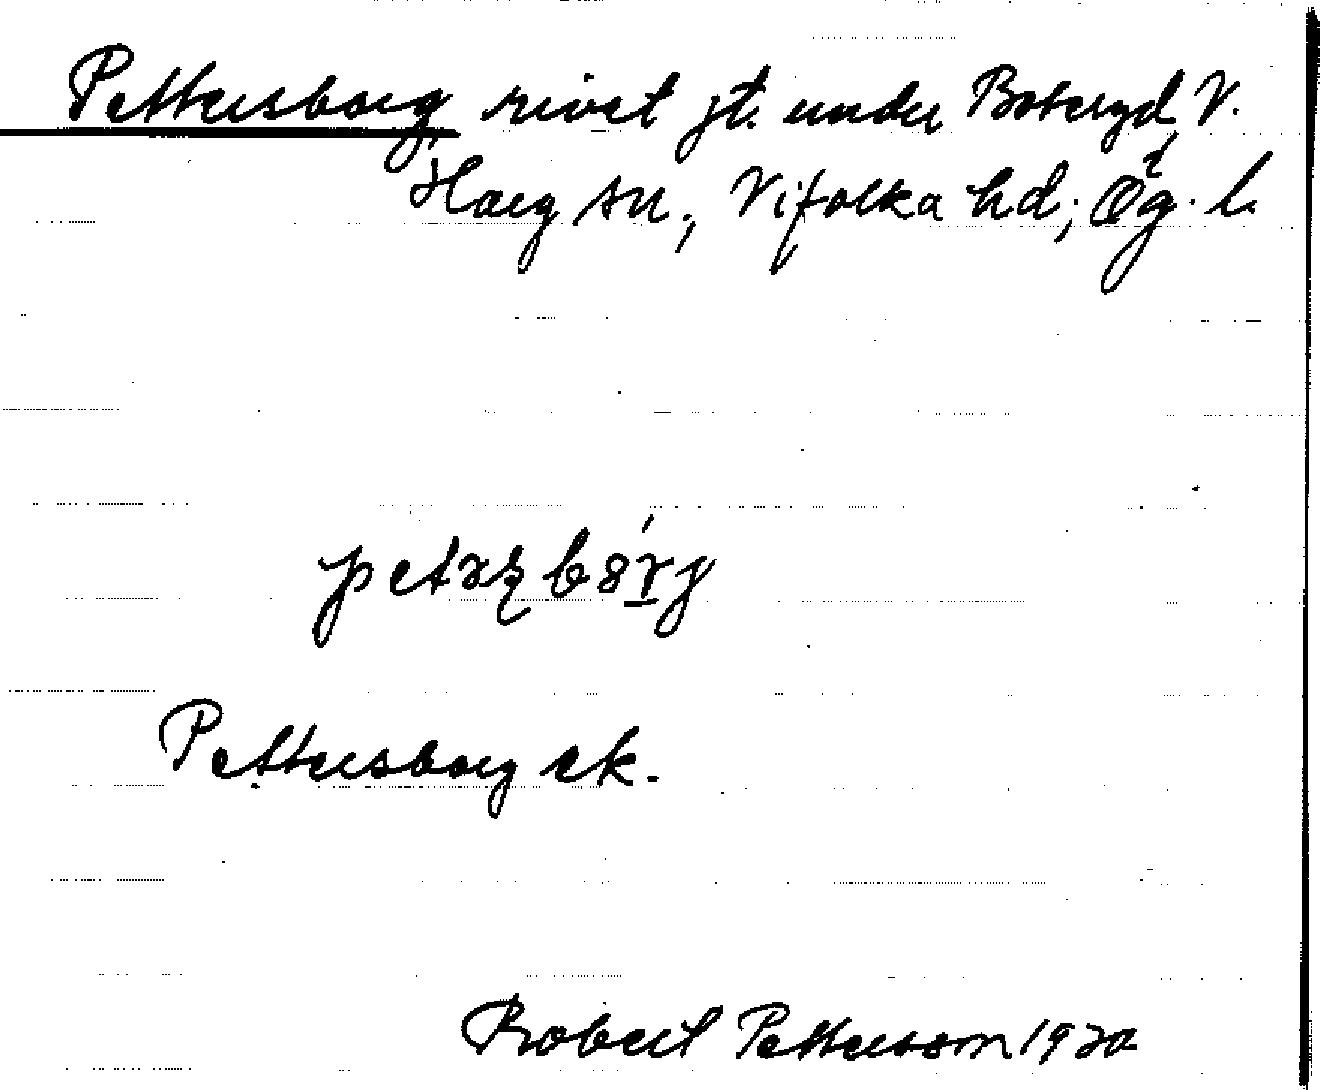 Pettersborg rivet jt. under Boteryd, V.
Harg sn., Vifolka hd; Ög. l.
petərʂbórj
Pettersborg ek.
Robert Pettersson 1920